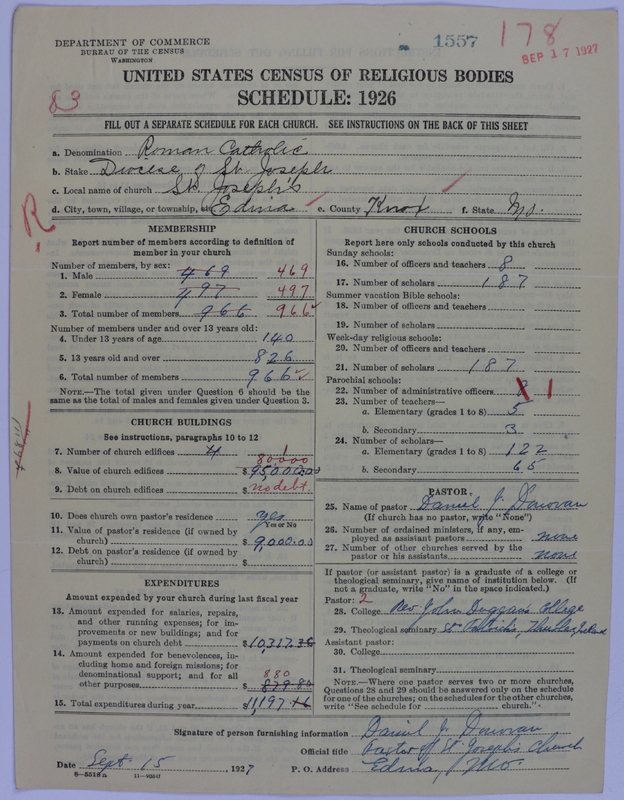 DEPARTMENT OF COMMERCE
BUREAU OF THE CENSUS
WASHINGTON
1557
178
SEP 17 1927
UNITED STATES CENSUS OF RELIGIOUS BODIES
SCHEDULE: 1926
83
FILL OUT A SEPARATE SCHEDULE FOR EACH CHURCH. SEE INSTRUCTIONS ON THE BACK OF THIS SHEET
a. Denomination Roman Catholic
b. Stake Diocese of St. Joseph
c. Local name of church St. Joseph's
d. City, town, village, or township, at Edina e. County Knox f. State Mo.
R
MEMBERSHIP
Report number of members according to definition of member in your church
Number of members, by sex:
1. Male 469 469
2. Female 497 497
3. Total number of members 966 966
Number of members under and over 13 years old:
4. Under 13 years of age 140
5. 13 years old and over 826
6. Total number of members 966
NOTE.—The total given under Question 6 should be the same as the total of males and females given under Question 3.
CHURCH BUILDINGS
See instructions, paragraphs 10 to 12
7. Number of church edifices 4 1
80,000
8. Value of church edifices $95,000.00
9. Debt on church edifices $ no debt
10. Does church own pastor's residence yes
Yes or No
11. Value of pastor's residence (if owned by church) $9,000.00
12. Debt on pastor's residence (if owned by church) $
EXPENDITURES
Amount expended by your church during last fiscal year
13. Amount expended for salaries, repairs, and other running expenses; for improvements or new buildings; and for payments on church debt $10,317.36
14. Amount expended for benevolences, including home and foreign missions; for denominational support; and for all other purposes $ 880 879.80
15. Total expenditures during year $11,197.16
CHURCH SCHOOLS
Report here only schools conducted by this church
Sunday schools:
16. Number of officers and teachers 8
17. Number of scholars 187
Summer vacation Bible schools:
18. Number of officers and teachers
19. Number of scholars
Week-day religious schools:
20. Number of officers and teachers
21. Number of scholars 187
Parochial schools:
22. Number of administrative officers 8 1
23. Number of teachers—
a. Elementary (grades 1 to 8) 5
b. Secondary 3
24. Number of scholars—
a. Elementary (grades 1 to 8) 122
b. Secondary 65
PASTOR
25. Name of pastor Daniel J. Donovan
(If church has no pastor, write "None")
26. Number of ordained ministers, if any, employed as assistant pastors none
27. Number of other churches served by the pastor or his assistants none
If pastor (or assistant pastor) is a graduate of a college or theological seminary, give name of institution below. (If not a graduate, write "No" in the space indicated.)
Pastor: 2
28. College Rev John Duggans College
29. Theological seminary St Patricks, Thurles Ireland
Assistant pastor:
30. College
31. Theological seminary
NOTE.—Where one pastor serves two or more churches, Questions 28 and 29 should be answered only on the schedule for one of the churches; on the schedules for the other churches, write "See schedule for church."
Signature of person furnishing information Daniel J. Donovan
Official title Pastor of St Joseph's Church
Date Sept 15, 1927 P. O. Address Edina, Mo.
8—5518a 11—9264f